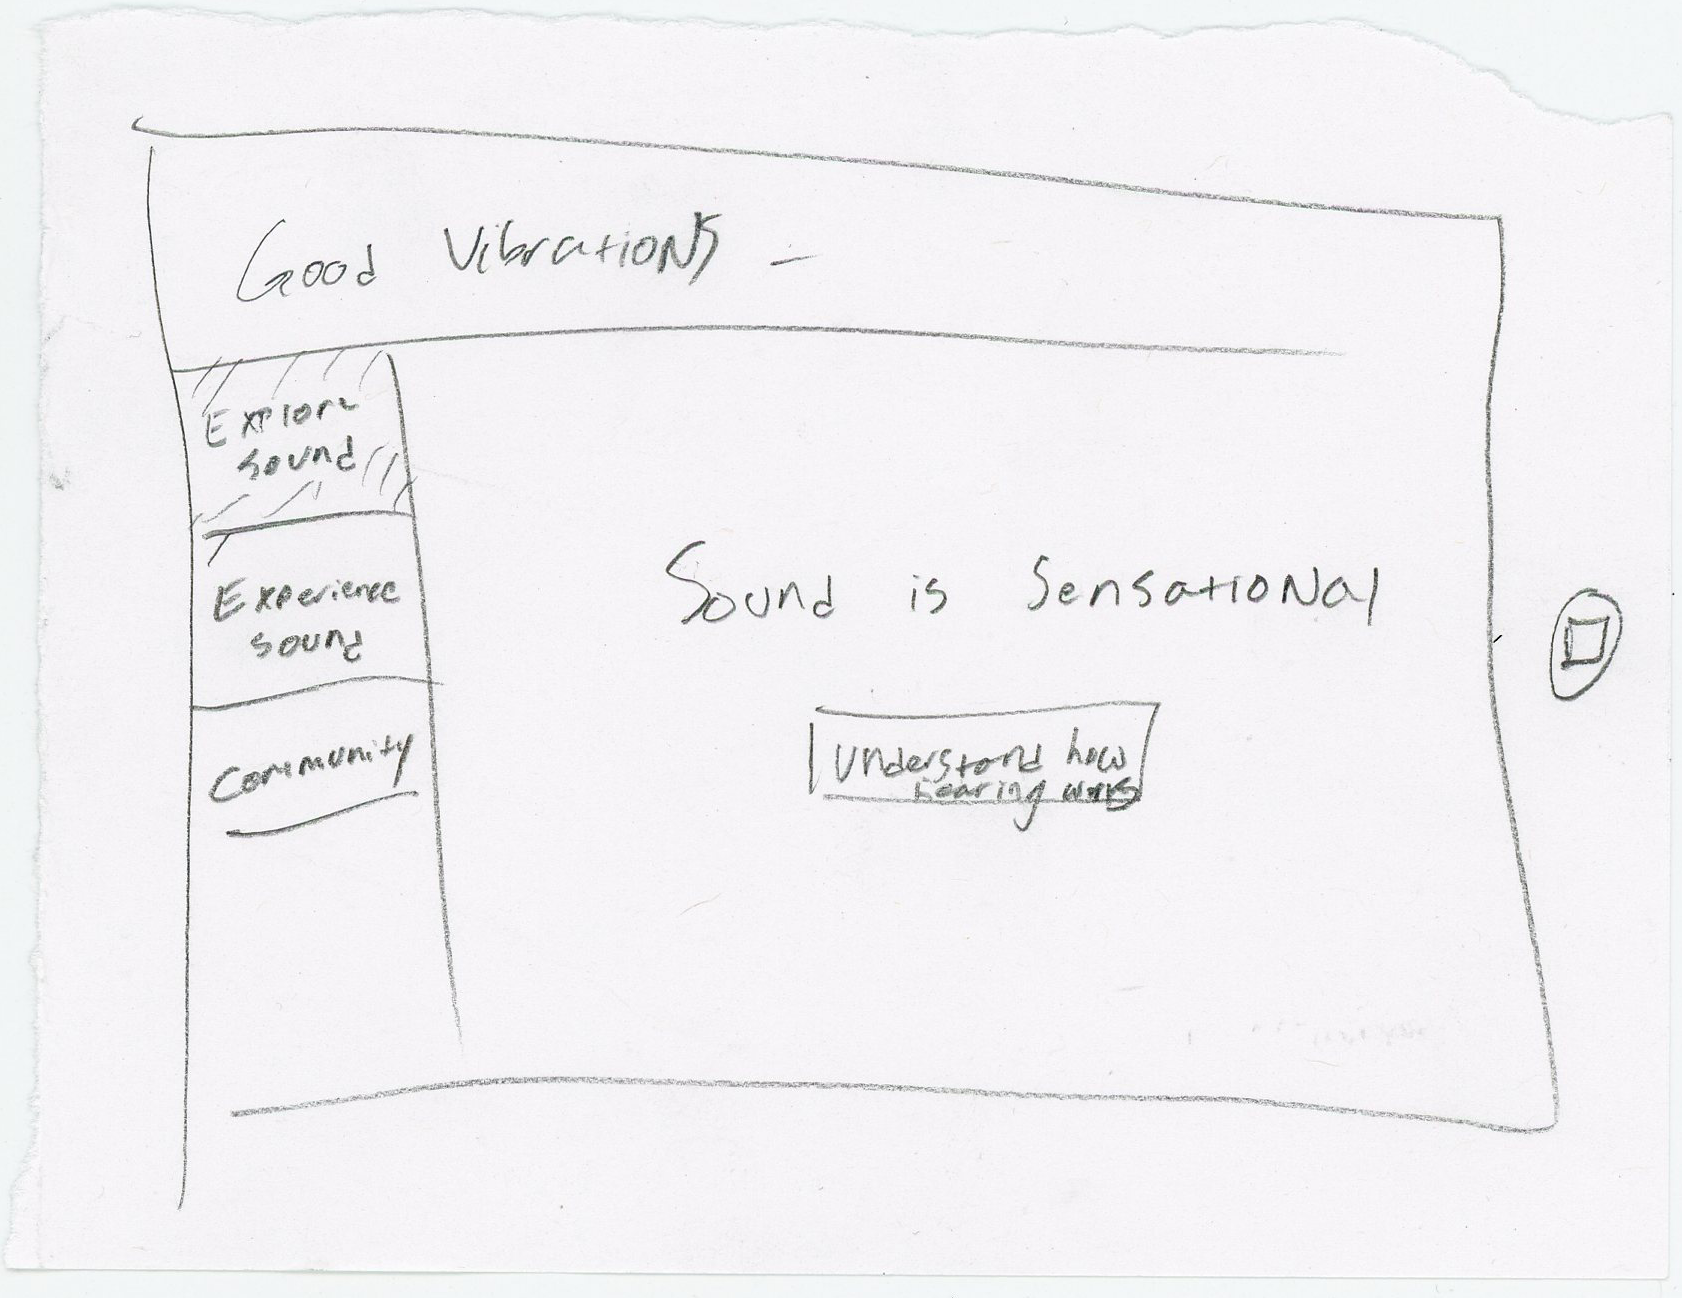 Good Vibrations
Explore
Sound
Experience
sound
Community
Sound is Sensational
Understand how
hearing works